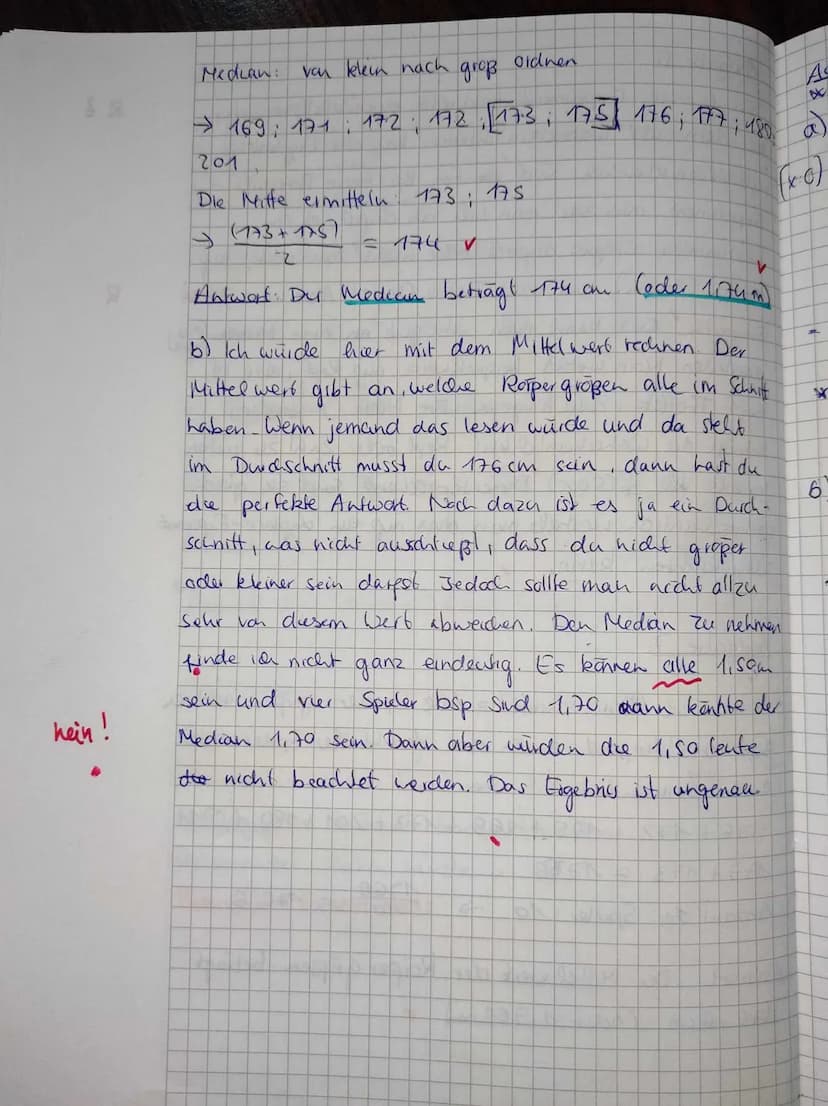 Median: von klein nach groß ordnen
→ 169; 171; 172; 172; [173; 175] 176; 177; 180;
201
Die Mitte ermitteln: 173; 175
→ (173+175)
2
= 174 ✓
Antwort: Der Median beträgt 174 cm (oder 1,74 m)
b) Ich würde hier mit dem Mittelwert rechnen Der
Mittelwert gibt an, welche Körpergrößen alle im Schnitt
haben. Wenn jemand das lesen würde und da steht
im Durchschnitt musst du 176 cm sein, dann hast du
die perfekte Antwort. Noch dazu ist es ja ein Durch-
schnitt, was nicht auschließt, dass du nicht größer
oder kleiner sein darfst Jedoch sollte man nicht allzu
sehr von diesem Wert abweichen. Den Median zu nehmen
finde ich nicht ganz eindeutig. Es können alle 1,50m
sein und vier Spieler bsp sind 1,70 dann könnte der
Median 1,70 sein. Dann aber würden die 1,50 leute
nicht beachtet werden. Das Ergebnis ist ungenau
nein!
a)
6